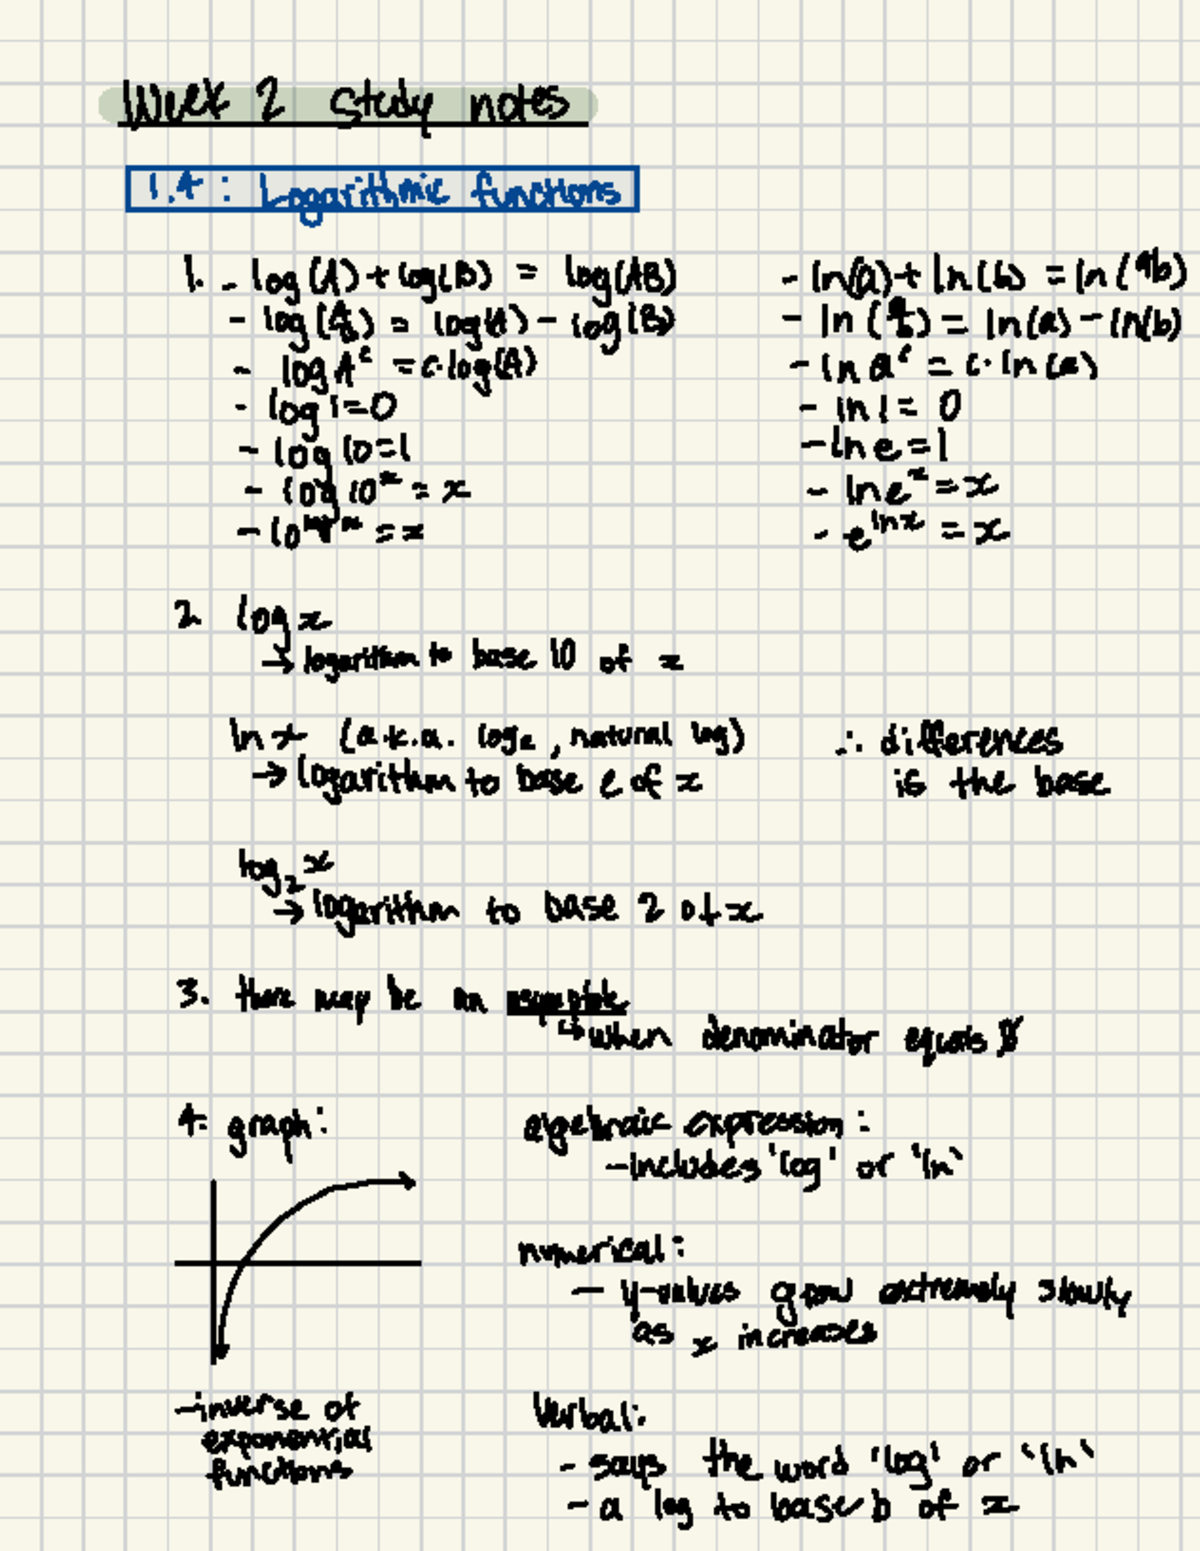 Week 2 study notes
1.4 : Logarithmic functions
1. - log(A) + log(B) = log(AB)
- log(A/B) = log(A) - log(B)
- log A^c = c·log(A)
- log 1 = 0
- log 10 = 1
- log 10^x = x
- 10^log x = x
- ln(a) + ln(b) = ln(ab)
- ln(a/b) = ln(a) - ln(b)
- ln a^c = c·ln(a)
- ln 1 = 0
- ln e = 1
- ln e^x = x
- e^ln x = x
2. log x
→ logarithm to base 10 of x
ln x (a.k.a. logₑ, natural log)
→ logarithm to base e of x
∴ differences
is the base
log₂ x
→ logarithm to base 2 of x
3. there may be an asymptote
↳ when denominator equals 0
4. graph:
- inverse of
exponential
functions
algebraic expression:
- includes 'log' or 'ln'
numerical:
- y-values grow extremely slowly
as x increases
Verbal:
- says the word 'log' or 'ln'
- a log to base b of x